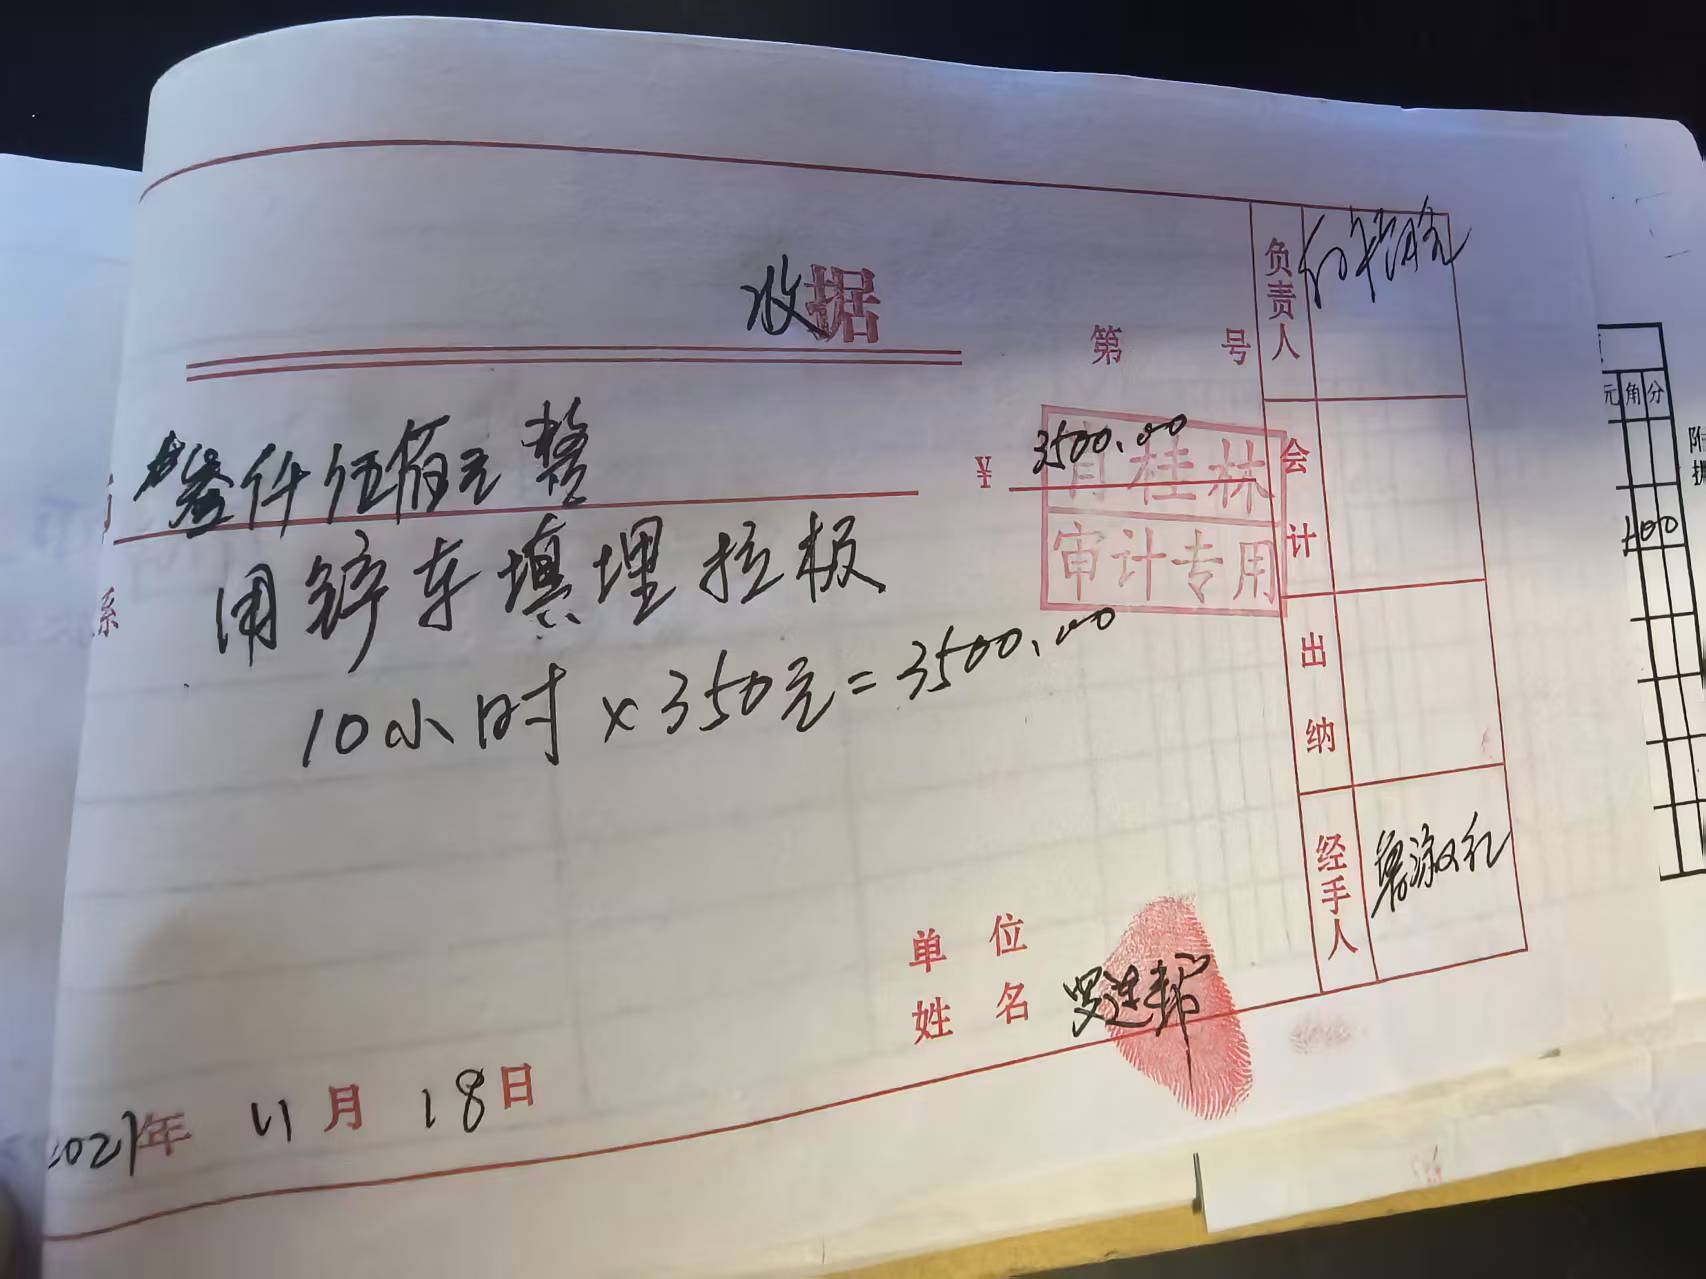 收据
第 号
叁仟伍佰元整
¥ 3500.00
桂林
审计专用
系
用铲车填埋垃板
10小时×350元=3500.00
负责人
会计
出纳
经手人
单位
姓名 罗连邦
2021年 11月 18日
元 角 分
附
据